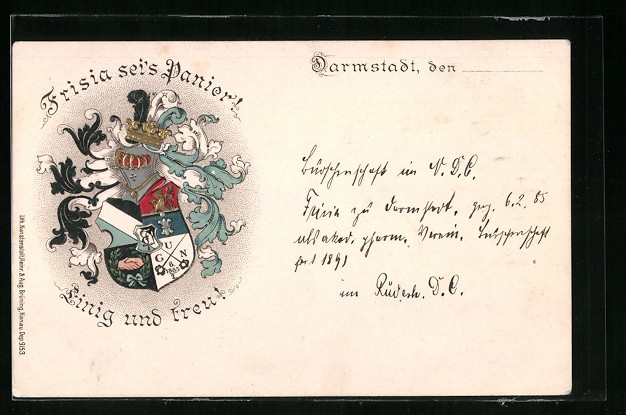 Frisia sei's Panier!
Darmstadt, den
Burschenschaft im N. D. C.
Frisia zu Darmstadt, gegr. 6.2.85
als akad. pharm. Verein, Burschenschaft
seit 1891
im Rüdesh. D. C.
G U N
6
1885
2
Einig und treu!
Lith. Kunstanstalt Heinr. & Aug. Brüning, Hanau Dep. 9153